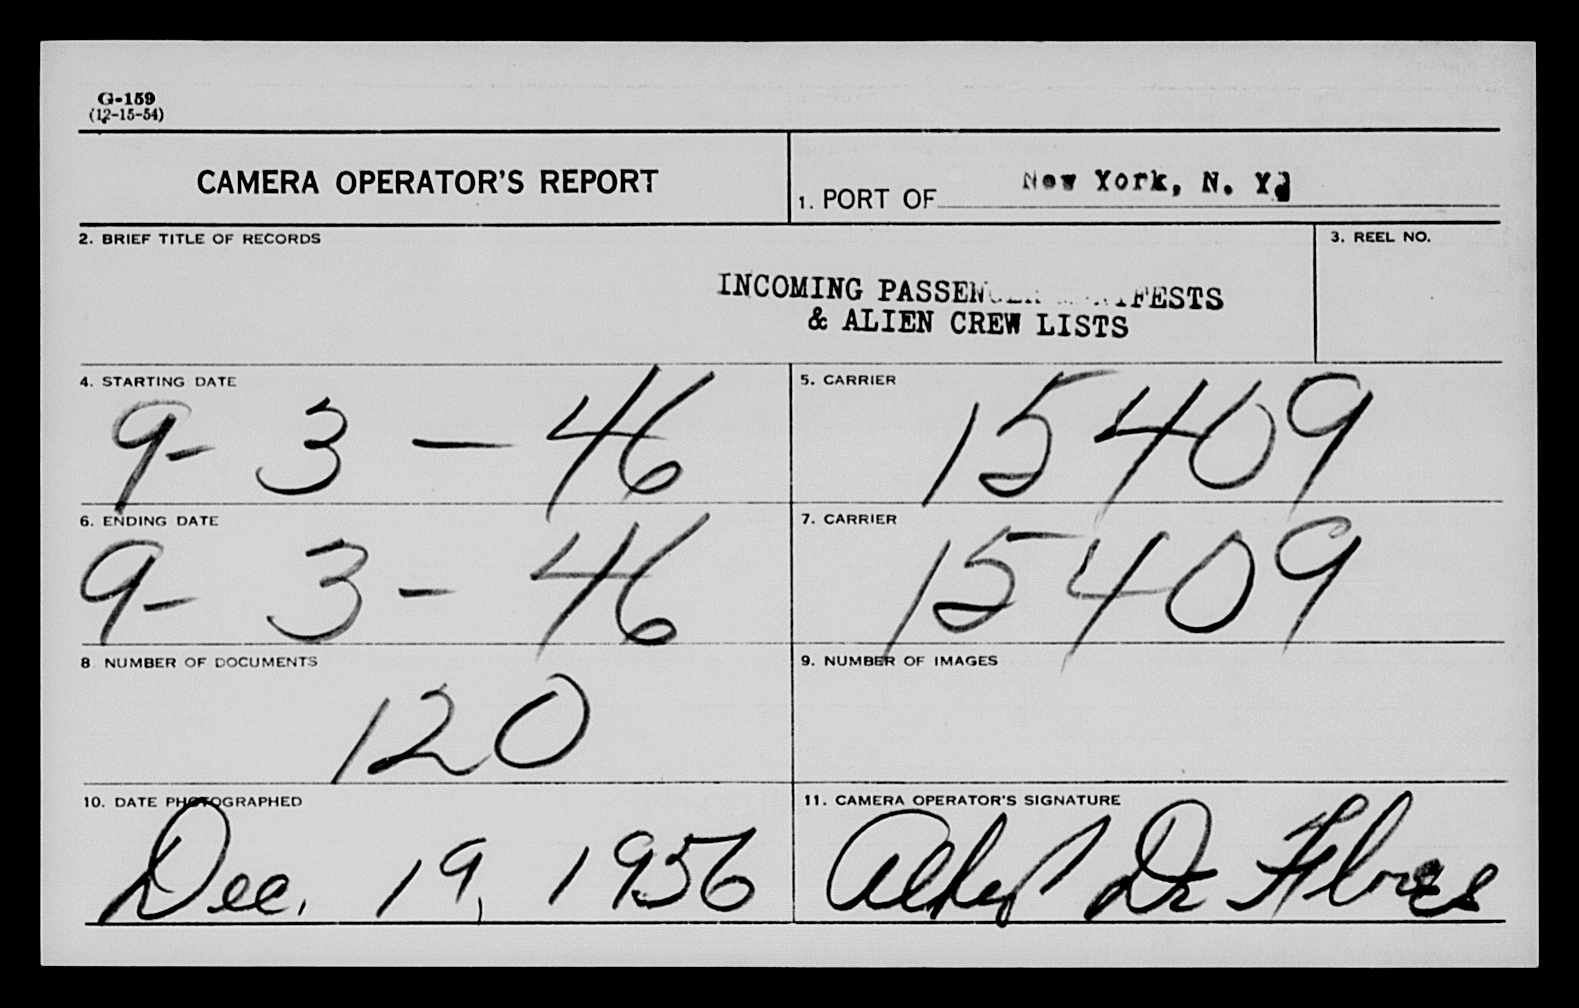 G-159
(12-15-54)
CAMERA OPERATOR'S REPORT
1. PORT OF New York, N. Y.
2. BRIEF TITLE OF RECORDS
3. REEL NO.
INCOMING PASSENGER MANIFESTS
& ALIEN CREW LISTS
4. STARTING DATE
9-3-46
5. CARRIER
15409
6. ENDING DATE
9-3-46
7. CARRIER
15409
8 NUMBER OF DOCUMENTS
120
9. NUMBER OF IMAGES
10. DATE PHOTOGRAPHED
Dec. 19, 1956
11. CAMERA OPERATOR'S SIGNATURE
De Flores